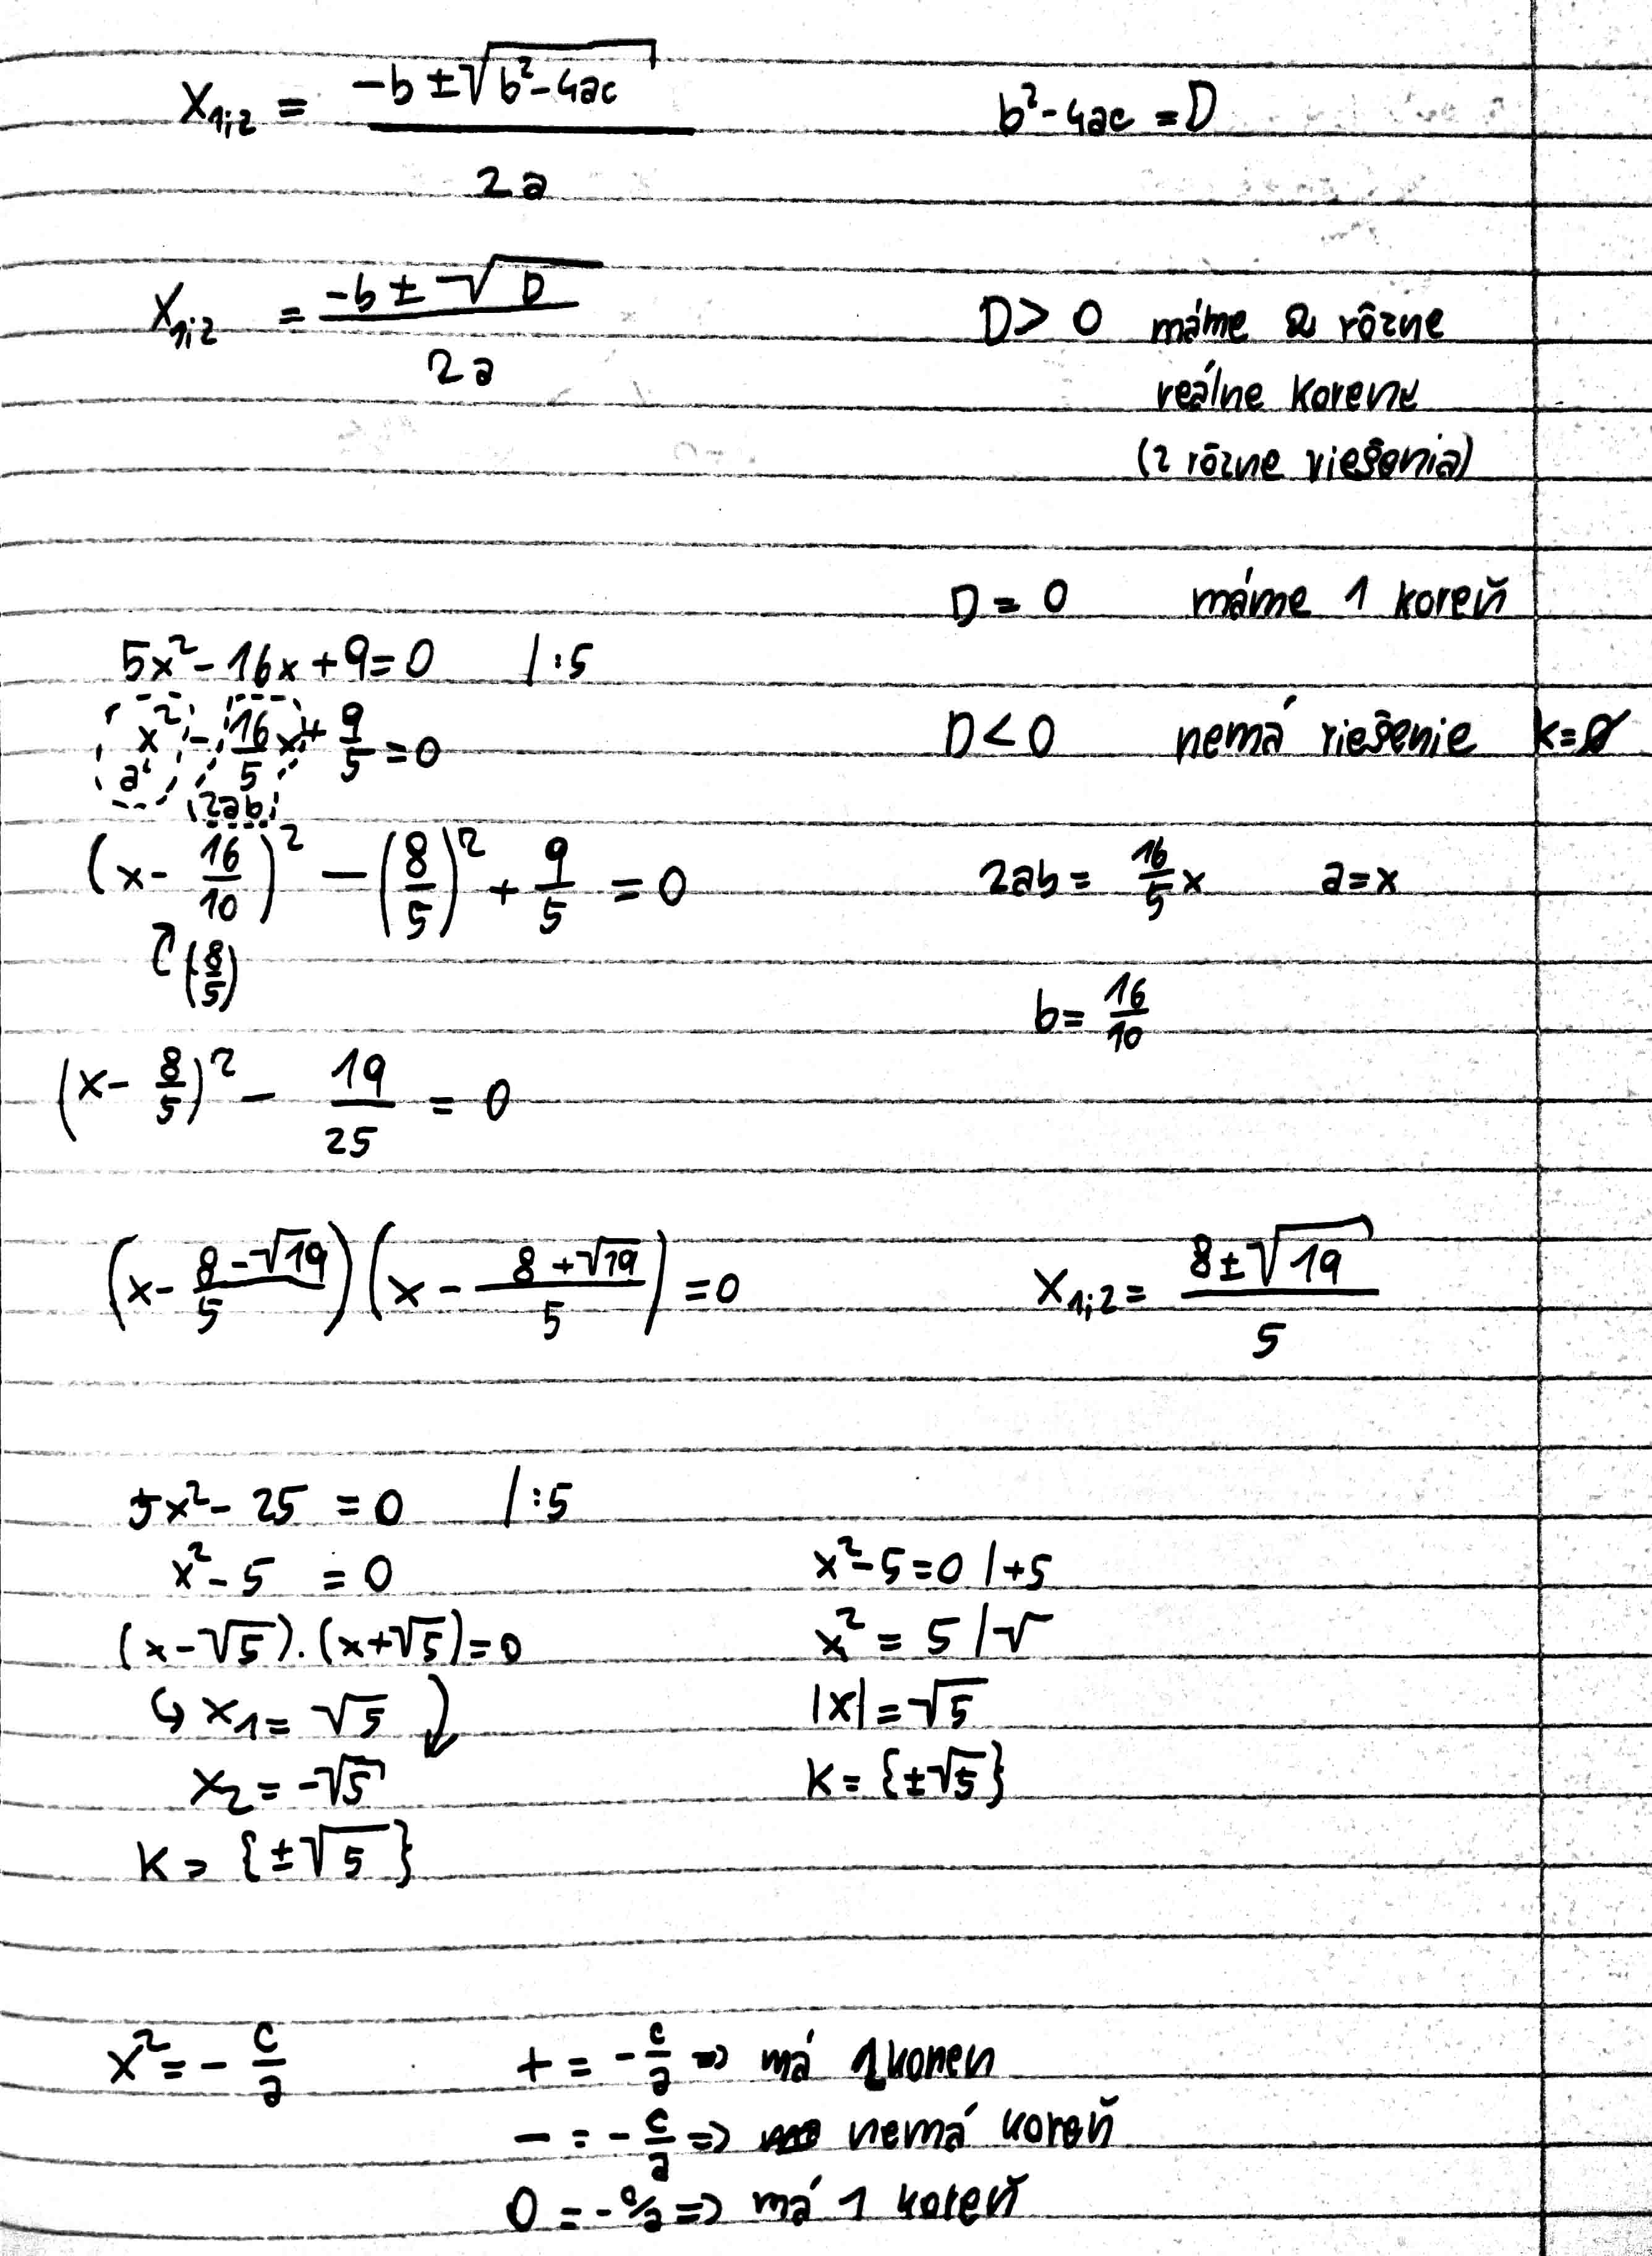 x₁;₂ = (-b ± √(b²-4ac)) / 2a
b²-4ac = D
x₁;₂ = (-b ± √D) / 2a
D > 0 máme 2 rôzne
reálne korene
(2 rôzne riešenia)
D = 0 máme 1 koreň
5x² - 16x + 9 = 0 /:5
x² - 16/5 x + 9/5 = 0
a² 2ab
D < 0 nemá riešenie K = ∅
(x - 16/10)² - (8/5)² + 9/5 = 0
(8/5)
2ab = 16/5 x a = x
b = 16/10
(x - 8/5)² - 19/25 = 0
(x - (8-√19)/5)(x - (8+√19)/5) = 0
x₁;₂ = (8±√19)/5
5x² - 25 = 0 /:5
x² - 5 = 0
(x-√5).(x+√5) = 0
↳ x₁ = √5
x₂ = -√5
K = {±√5}
x² - 5 = 0 /+5
x² = 5 /√
|x| = √5
K = {±√5}
x² = - c/a
+ = - c/a => má koren
- = - c/a => nemá koreň
0 = - c/a => má 1 koreň